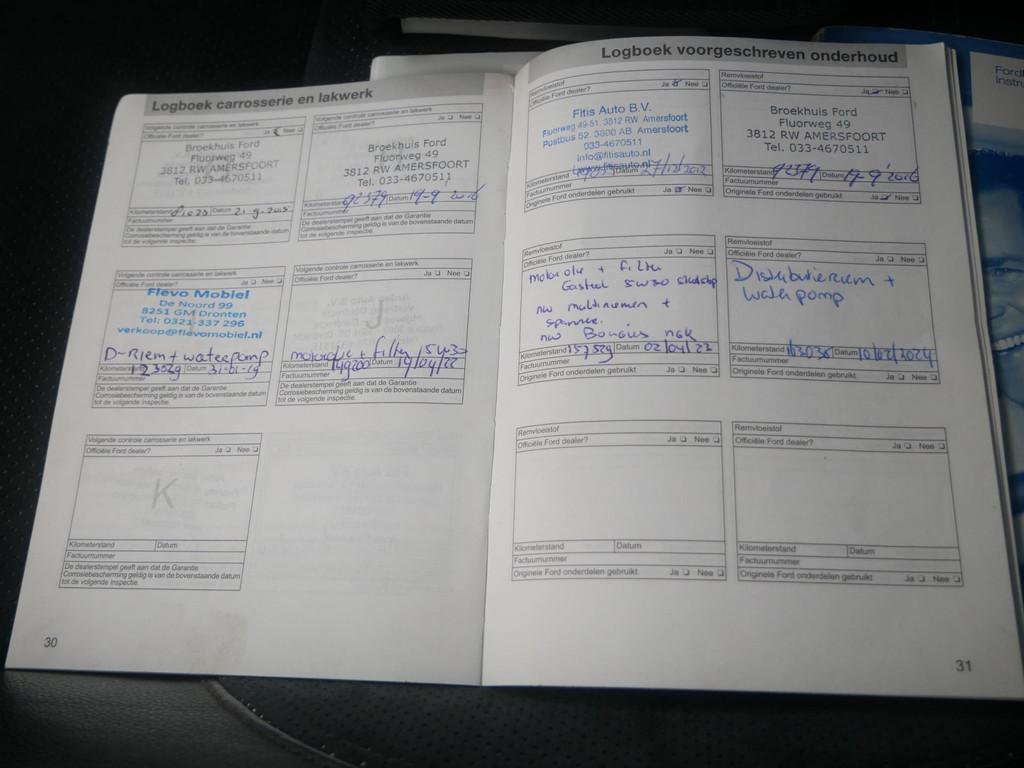 Logboek carrosserie en lakwerk
Volgende controle carrosserie en lakwerk
Officiële Ford dealer? Ja Nee
Broekhuis Ford
Fluorweg 49
3812 RW AMERSFOORT
Tel. 033-4670511
Kilometerstand Datum 21-9-2015
Factuurnummer
De dealerstempel geeft aan dat de Garantie
Corrosiebescherming geldig is van bovenstaande datum
tot de volgende inspectie.
Volgende controle carrosserie en lakwerk
Officiële Ford dealer? Ja Nee
Broekhuis Ford
Fluorweg 49
3812 RW AMERSFOORT
Tel. 033-4670511
Kilometerstand 92379 Datum 19-9-2016
Factuurnummer
De dealerstempel geeft aan dat de Garantie
Corrosiebescherming geldig is van de bovenstaande datum
tot de volgende inspectie.
Volgende controle carrosserie en lakwerk
Officiële Ford dealer? Ja Nee
Flevo Mobiel
De Noord 99
8251 GM Dronten
Tel: 0321-337 296
verkoop@flevomobiel.nl
D-Riem + waterpomp
Kilometerstand 123029 Datum 31-01-19
Factuurnummer
De dealerstempel geeft aan dat de Garantie
Corrosiebescherming geldig is van de bovenstaande datum
tot de volgende inspectie.
Volgende controle carrosserie en lakwerk
Officiële Ford dealer? Ja Nee
J
motorolie + filter 5W30
Kilometerstand 149200 Datum 19/04/22
Factuurnummer
De dealerstempel geeft aan dat de Garantie
Corrosiebescherming geldig is van de bovenstaande datum
tot de volgende inspectie.
Volgende controle carrosserie en lakwerk
Officiële Ford dealer? Ja Nee
K
Kilometerstand Datum
Factuurnummer
De dealerstempel geeft aan dat de Garantie
Corrosiebescherming geldig is van de bovenstaande datum
tot de volgende inspectie.
30
Logboek voorgeschreven onderhoud
Remvloeistof
Officiële Ford dealer? Ja Nee
Fitis Auto B.V.
Fluorweg 49-51, 3812 RW Amersfoort
Postbus 52, 3800 AB Amersfoort
Tel. 033 4670511
info@fitisauto.nl
www.fitisauto.nl
Kilometerstand Datum 27/12/2012
Factuurnummer
Originele Ford onderdelen gebruikt Ja Nee
Remvloeistof
Officiële Ford dealer? Ja Nee
Broekhuis Ford
Fluorweg 49
3812 RW AMERSFOORT
Tel. 033-4670511
Kilometerstand 92379 Datum 19-9-2016
Factuurnummer
Originele Ford onderdelen gebruikt Ja Nee
Remvloeistof
Officiële Ford dealer? Ja Nee
motorolie + filter
Castrol 5W30
nw multiriemen +
spanner.
nw Bougies ngk
Kilometerstand 157529 Datum 02/04/23
Factuurnummer
Originele Ford onderdelen gebruikt Ja Nee
Remvloeistof
Officiële Ford dealer? Ja Nee
Distributieriem +
waterpomp
Kilometerstand 163036 Datum 10/02/2024
Factuurnummer
Originele Ford onderdelen gebruikt Ja Nee
Remvloeistof
Officiële Ford dealer? Ja Nee
Kilometerstand Datum
Factuurnummer
Originele Ford onderdelen gebruikt Ja Nee
Remvloeistof
Officiële Ford dealer? Ja Nee
Kilometerstand Datum
Factuurnummer
Originele Ford onderdelen gebruikt Ja Nee
31